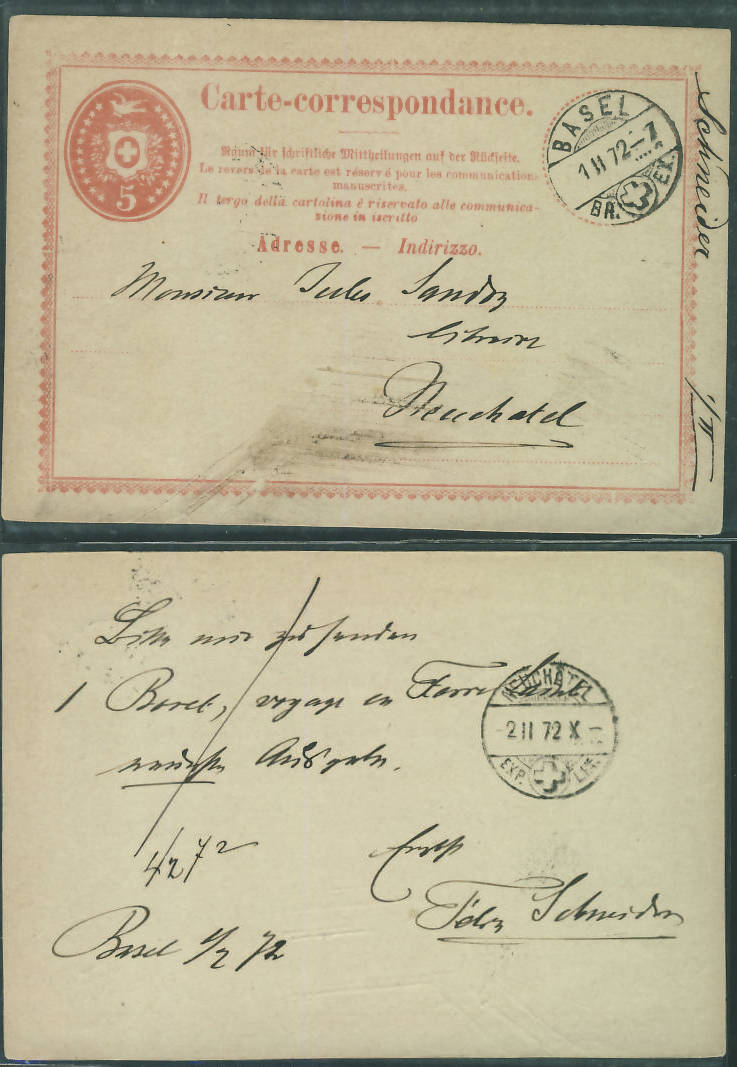 Carte-correspondance.
5
Raum für schriftliche Mittheilungen auf der Rückseite.
Le revers de la carte est réservé pour les communications
manuscrites.
Il tergo della cartolina é riservato alle communica-
zione in iscritto
Adresse. — Indirizzo.
BASEL
1 II 72-7
BR. EX.
Schneider
1/II
Monsieur Jules Sandoz
libraire
Neuchatel
Bitte mir zu senden
1 Borel, voyage en Terre Sainte
neueste Ausgabe.
NEUCHÂTEL
-2 II 72 X
EXP. LET.
4/2 72
Ergebst
Felix Schneider
Basel 1/2 72